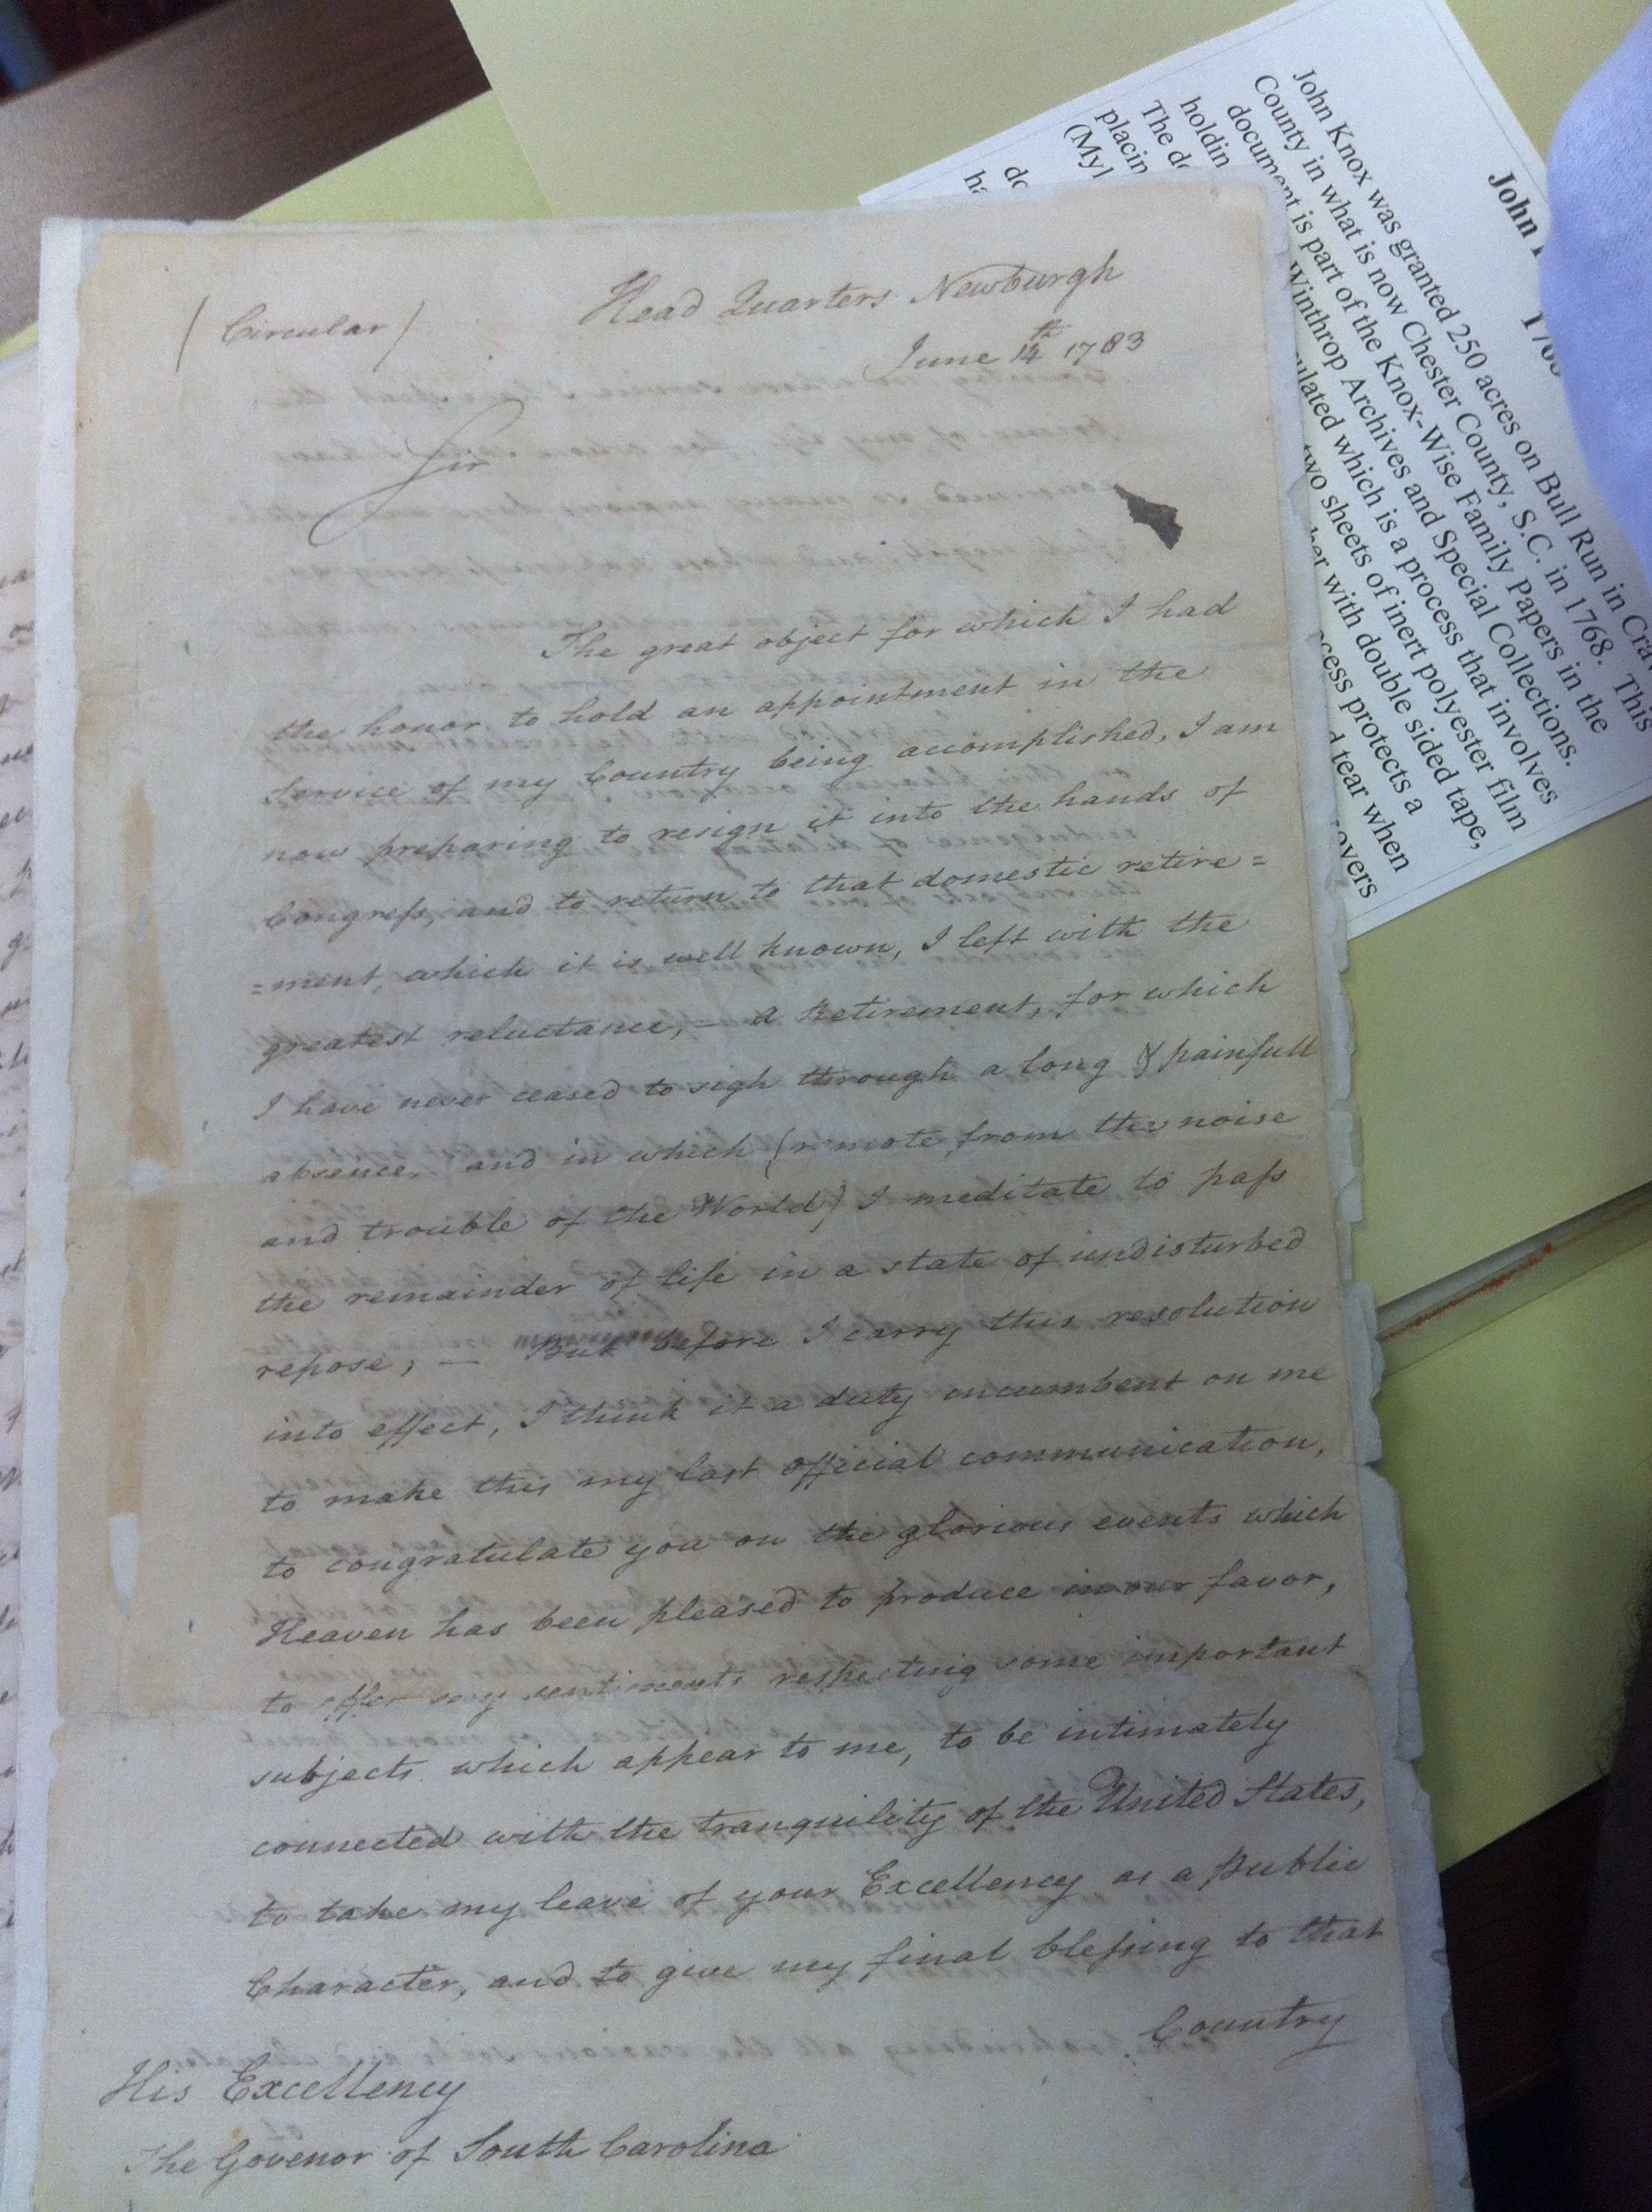 (Circular)
Head Quarters Newburgh
June 14th 1783
Sir
The great object for which I had
the honor to hold an appointment in the
Service of my Country being accomplished, I am
now preparing to resign it into the hands of
Congress, and to return to that domestic retire=
=ment, which it is well known, I left with the
greatest reluctance, — a Retirement, for which
I have never ceased to sigh through a long & painfull
absence, and in which (remote from the noise
and trouble of the World) I meditate to pass
the remainder of life in a state of undisturbed
repose; — But before I carry this resolution
into effect, I think it a duty incumbent on me
to make this my last official communication,
to congratulate you on the glorious events which
Heaven has been pleased to produce in our favor,
to offer my sentiments respecting some important
subjects which appear to me, to be intimately
connected with the tranquility of the United States,
to take my leave of your Excellency as a Public
Character, and to give my final blessing to that
Country
His Excellency
The Govenor of South Carolina
John
John Knox was granted 250 acres on Bull Run in
County in what is now Chester County, S.C. in 1768. This
document is part of the Knox-Wise Family Papers in the
holdin
Winthrop Archives and Special Collections.
The
which is a process that involves
placin
two sheets of inert polyester film
(Myl
with double sided tape,
protects a
tear when